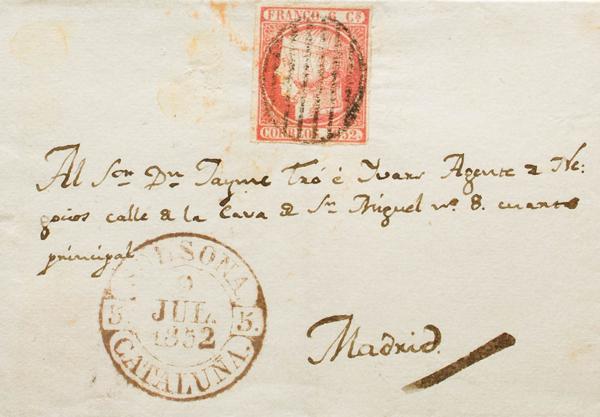 FRANCO 6 Cs
CORREOS 1852.
Al Sor. Dn. Jayme Tró é Ivars Agente d Ne-
gocios calle d la Cava d Sn. Miguel nº. 8. cuarto
principal.
SOLSONA
9
JUL.
1852
5. 5.
CATALUÑA.
Madrid.